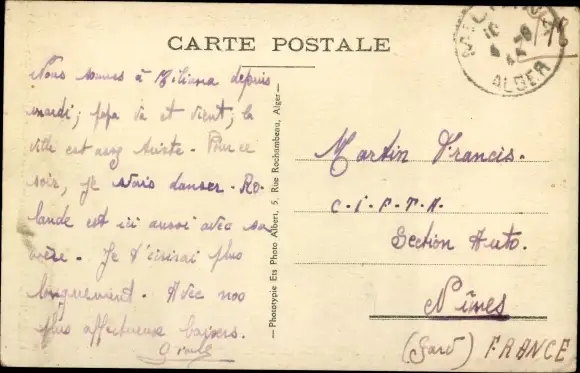 CARTE POSTALE
Nous sommes à Miliana depuis
mardi; papa va et vient; la
ville est assez triste. Pour ce
soir, je vais danser. Ro-
lande est ici aussi avec sa
mère. Je t'écrirai plus
longuement. Avec nos
plus affectueux baisers.
— Phototypie Ets Photo Albert, 5, Rue Rochambeau, Alger —
ALGER
Martin Francis.
Section Auto.
Nîmes
(Gard) FRANCE